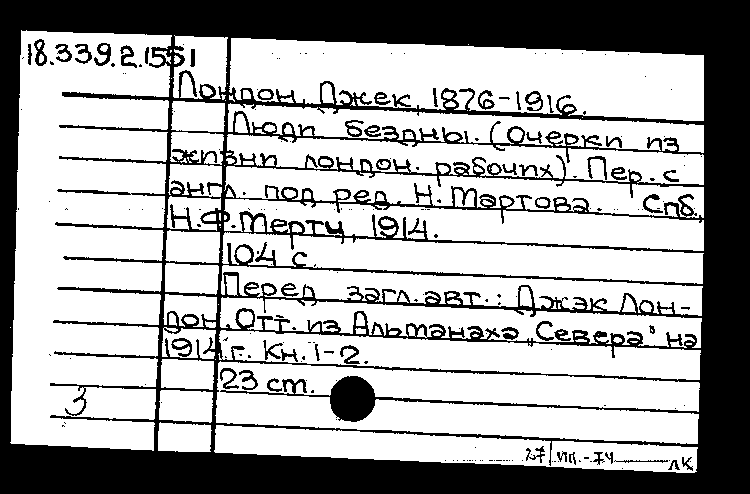 18.339.2.1551
Лондон, Джек, 1876-1916.
Люди бездны. (Очерки из
жизни лондон. рабочих). Пер. с
англ. под ред. Н. Мартова. Спб.,
Н.Ф.Мертц, 1914.
104 с.
Перед загл. авт.: Джэк Лон-
дон. Отт. из Альманаха „Севера" на
1914 г. Кн. 1-2.
23 см.
3
27/VIII.-74 ЛК